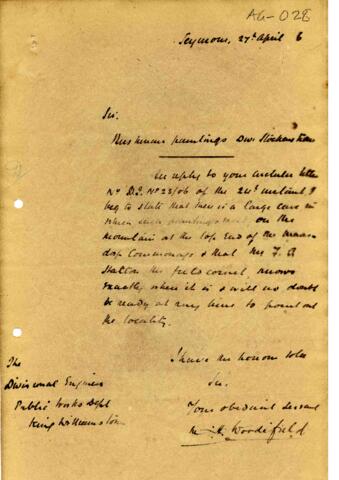 AG-028
Seymour, 27th April 6
Sir.
Bushman paintings Divn Stockenstrom
In reply to your circular letter
No D.I. No 23/06 of the 24th instant I
beg to state that there is a large cave in
which such paintings exist on the
mountain at the top end of the
Commonage & that Mr F. A
the field cornet, knows
exactly where it is & will no doubt
be ready at any time to point out
the locality.
I have the honour to be
Sir.
Your obedient servant
Woodifield
The
Divisional Engineer
Public Works Dept
King Williamstown